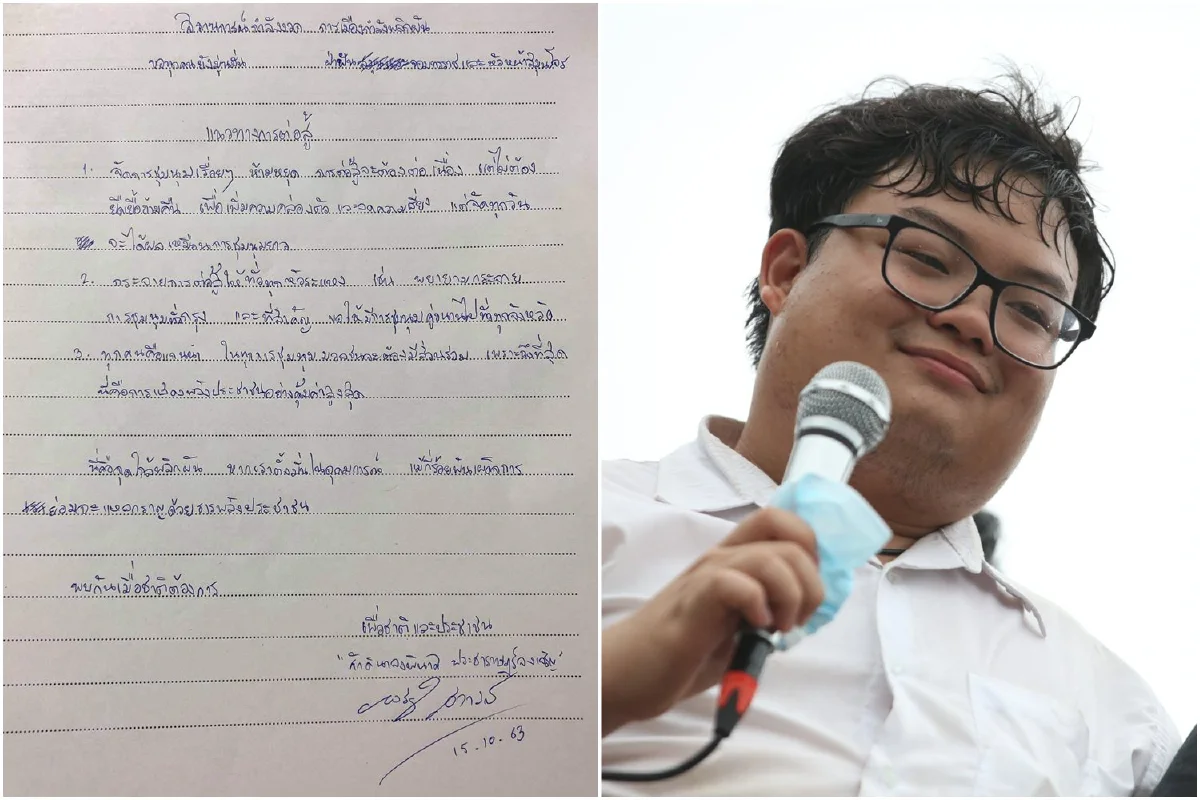 สถานการณ์กำลังงวด การเมืองกำลังพลิกผัน
ขอทุกคนยังมุ่งมั่น ฝ่าฟัน จอมทาราชและหัวหน้าสมุนโจร
แนวทางการต่อสู้
1. จัดการชุมนุมเรื่อยๆ ห้ามหยุด การต่อสู้จะต้องต่อเนื่อง แต่ไม่ต้อง
ยืดเยื้อข้ามคืน เพื่อเพิ่มความคล่องตัว และลดความเสี่ยง แต่จัดทุกวัน
จะได้ผลเหมือนการชุมนุมยาว
2. กระจายการต่อสู้ให้ทั่วทุกหัวระแหง เช่น พยายามกระจาย
การชุมนุมทั่วกรุง และที่สำคัญ ขอให้มีการชุมนุมคู่ขนานไปทั่วทุกจังหวัด
3. ทุกคนคือแกนนำ ในทุกการชุมนุมมวลชนจะต้องมีส่วนร่วม เพราะถึงที่สุด
นี่คือการแสดงพลังประชาชนอย่างคุ้มค่าสูงสุด
นี่คือจุดใกล้พลิกผัน หากเราตั้งมั่นในอุดมการณ์ แม้กี่ร้อยพันเผด็จการ
ย่อมจะแหลกราญด้วยธารพลังประชาชน
พบกันเมื่อชาติต้องการ
เพื่อชาติและประชาชน
"ศักดินาจงพินาศ ประชาราษฎร์จงเจริญ"
15.10.63